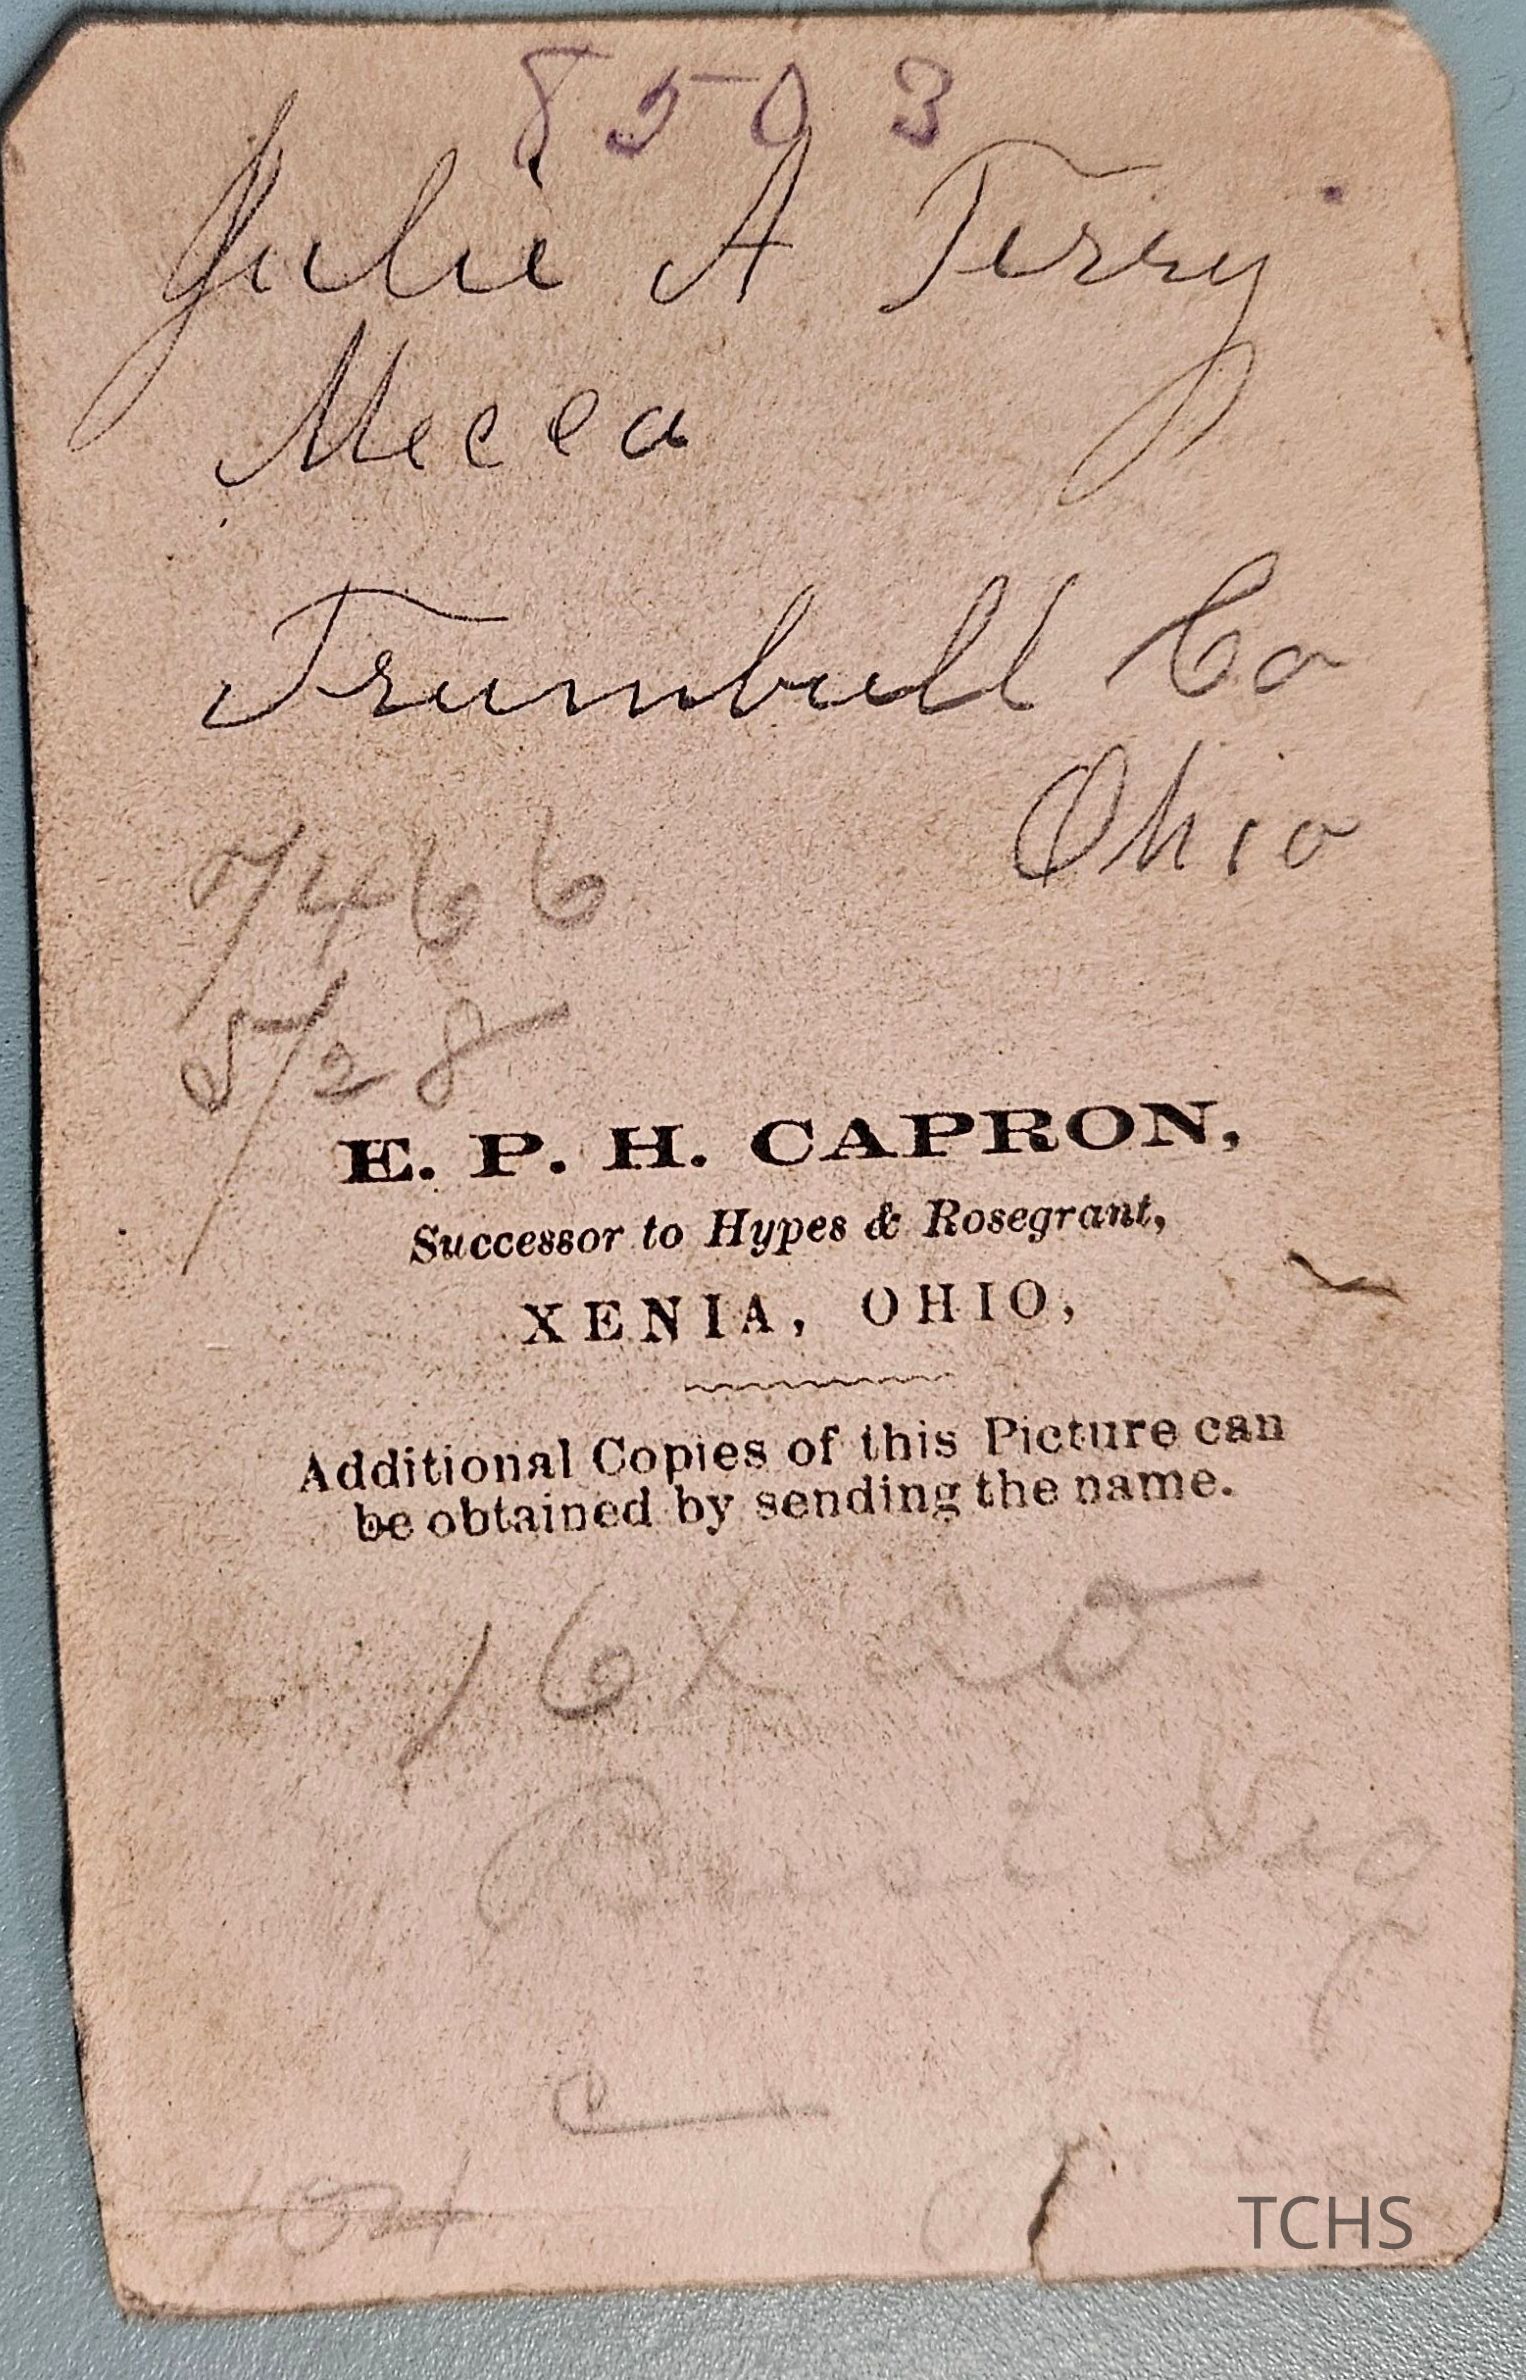 8503
Julie A Terry
Mecca
Trumbull Co
Ohio
7466
5/28
E. P. H. CAPRON,
Successor to Hypes & Rosegrant,
XENIA, OHIO,
Additional Copies of this Picture can
be obtained by sending the name.
16 x 20
TCHS